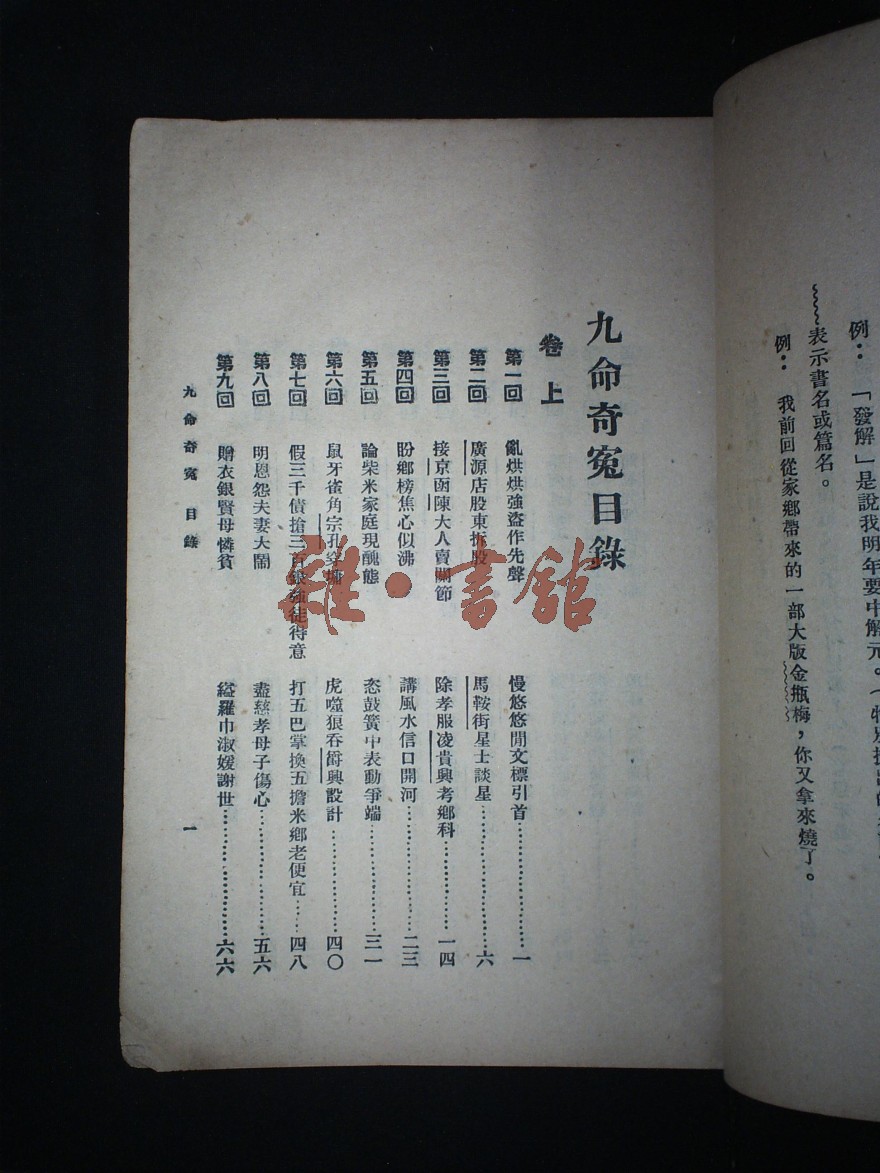 例：「發解」是說我明年要中解元。
表示書名或篇名。
例：我前回從家鄉帶來的一部大版金瓶梅，你又拿來燒了。
九命奇冤目錄
卷上
第一回 亂烘烘強盜作先聲 慢悠悠閒文標引首……一
第二回 廣源店股東拆股 馬鞍街星士談星……六
第三回 接京函陳大人賣關節 除孝服凌貴興考鄉科……一四
第四回 盼鄉榜焦心似沸 講風水信口開河……二三
第五回 論柴米家庭現醜態 恣鼓簧中表動爭端……三一
第六回 鼠牙雀角宗孔穿墉 虎噬狼吞爵興設計……四〇
第七回 假三千債搶三百銀強徒得意 打五巴掌換五擔米鄉老便宜……四八
第八回 明恩怨夫妻大鬧 盡慈孝母子傷心……五六
第九回 贈衣銀賢母憐貧 縊羅巾淑媛謝世……六六
九命奇冤 目錄 一
雜·書館